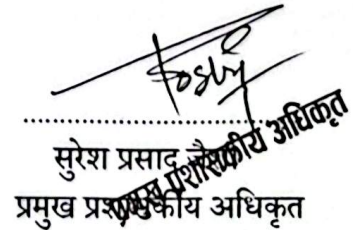 सुरेश प्रसाद
प्रमुख प्रशासकीय अधिकृत
प्रमुख प्रशासकीय अधिकृत